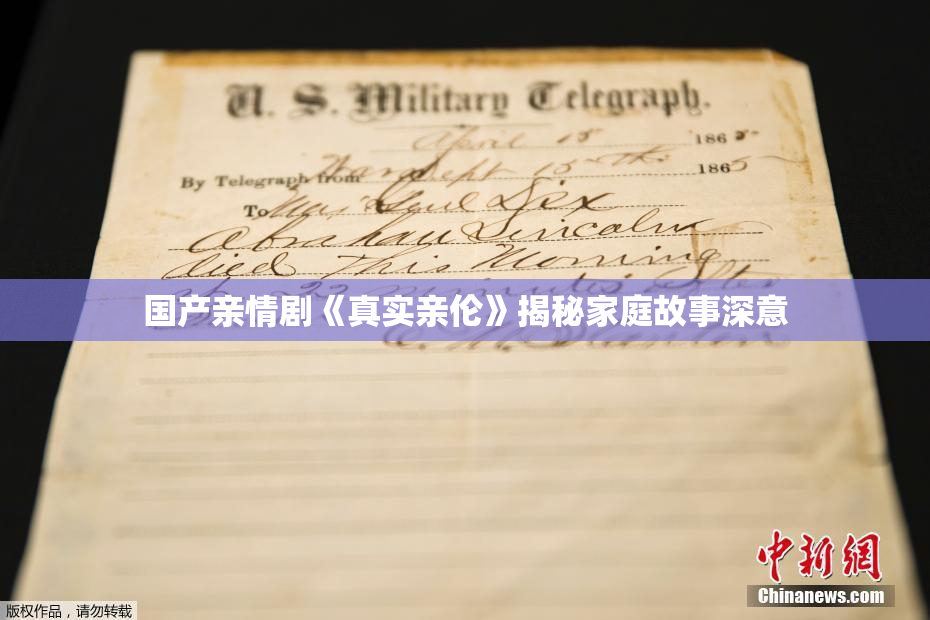 U. S. Military Telegraph.
April 15 1865
By Telegraph from War Dept 15th 1865
To Maj Genl Dix
Abraham Lincoln
died This Morning
22 minutes after
国产亲情剧《真实亲伦》揭秘家庭故事深意
E. M. Stanton
中新網
Chinanews.com
版权作品，请勿转载